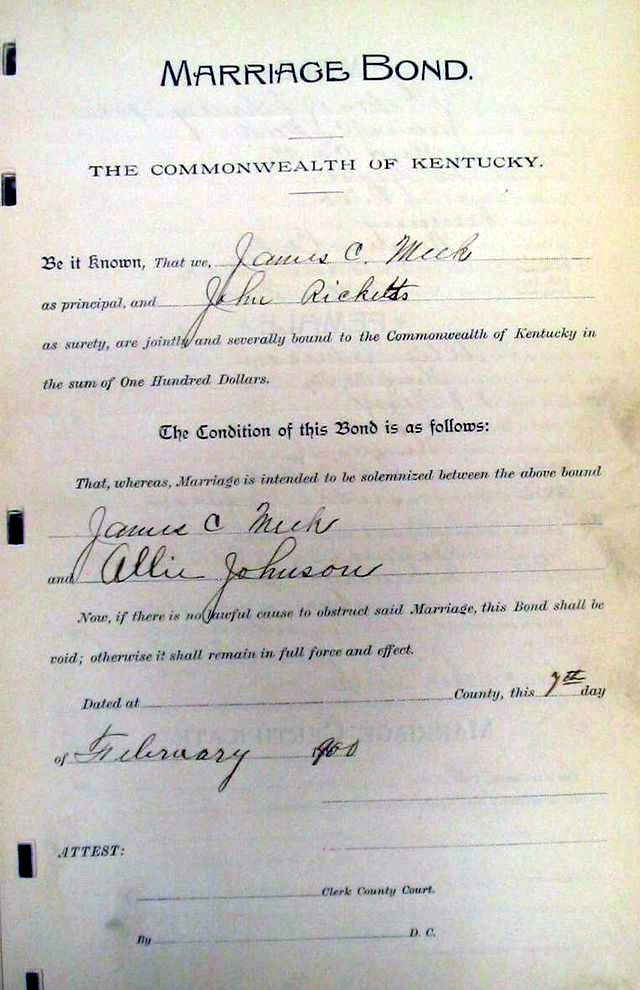 MARRIAGE BOND.
THE COMMONWEALTH OF KENTUCKY.
Be it Known, That we, James C. Meek
as principal, and John Ricketts
as surety, are jointly and severally bound to the Commonwealth of Kentucky in
the sum of One Hundred Dollars.
The Condition of this Bond is as follows:
That, whereas, Marriage is intended to be solemnized between the above bound
James C Meek
and Allie Johnson
Now, if there is no lawful cause to obstruct said Marriage, this Bond shall be
void; otherwise it shall remain in full force and effect.
Dated at County, this 7th day
of February 1900
ATTEST:
Clerk County Court.
By D. C.